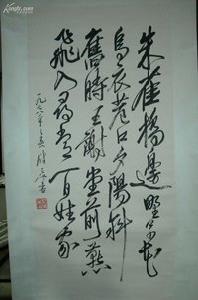 朱雀橋邊野草花
烏衣巷口夕陽斜
舊時王謝堂前燕
飛入尋常百姓家
一九七八年